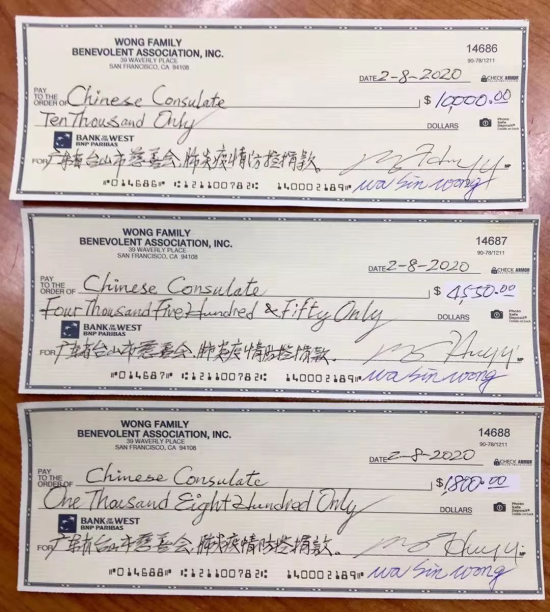 WONG FAMILY
BENEVOLENT ASSOCIATION, INC.
39 WAVERLY PLACE
SAN FRANCISCO, CA 94108
14686
90-78/1211
DATE 2-8-2020
CHECK ARMOR
PAY TO THE ORDER OF Chinese Consulate $ 10,000.00
Ten Thousand Only DOLLARS
Photo Safe Deposit
BANK OF THE WEST
BNP PARIBAS
FOR 广东省台山市慈善会.肺炎疫情防控捐款. MP
wa sin wong
⑈014686⑈ ⑆121100782⑆ 140002189⑈
WONG FAMILY
BENEVOLENT ASSOCIATION, INC.
39 WAVERLY PLACE
SAN FRANCISCO, CA 94108
14687
90-78/1211
DATE 2-8-2020
CHECK ARMOR
PAY TO THE ORDER OF Chinese Consulate $ 4550.00
Four Thousand Five Hundred & Fifty Only DOLLARS
Photo Safe Deposit
BANK OF THE WEST
BNP PARIBAS
FOR 广东省台山市慈善会.肺炎疫情防控捐款. MP
wa sin wong
⑈014687⑈ ⑆121100782⑆ 140002189⑈
WONG FAMILY
BENEVOLENT ASSOCIATION, INC.
39 WAVERLY PLACE
SAN FRANCISCO, CA 94108
14688
90-78/1211
DATE 2-8-2020
CHECK ARMOR
PAY TO THE ORDER OF Chinese Consulate $ 1,800.00
One Thousand Eight Hundred Only DOLLARS
Photo Safe Deposit
BANK OF THE WEST
BNP PARIBAS
FOR 广东省台山市慈善会.肺炎疫情防控捐款. MP
wa sin wong
⑈014688⑈ ⑆121100782⑆ 140002189⑈